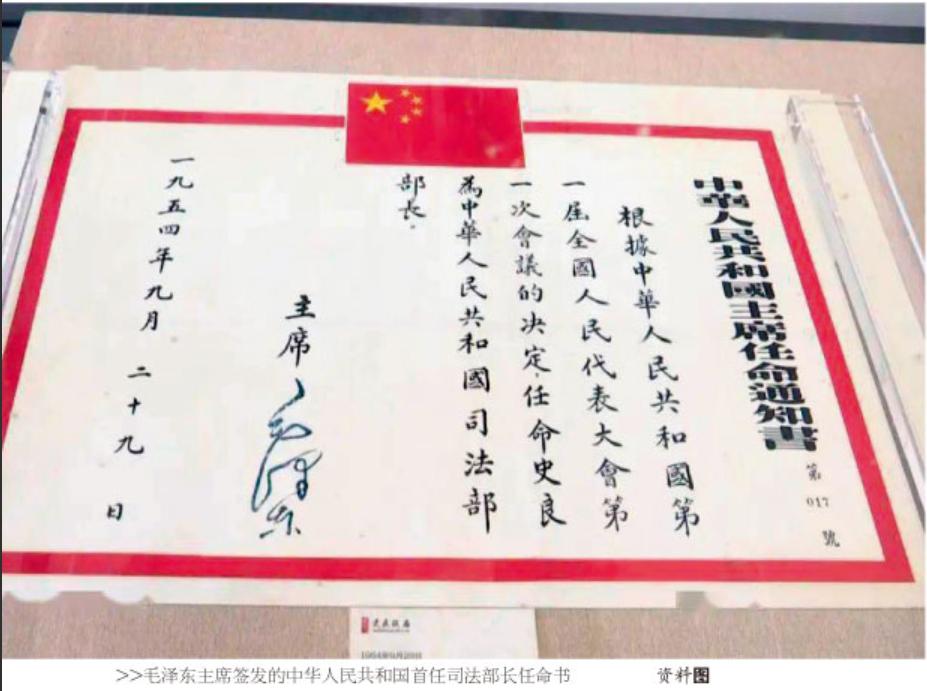 中華人民共和國主席任命通知書
第017號
根據中華人民共和國第
一屆全國人民代表大會第
一次會議的決定，任命史良
為中華人民共和國司法部
部長。
主席 毛澤東
一九五四年九月二十九日
>>毛泽东主席签发的中华人民共和国首任司法部长任命书 资料图